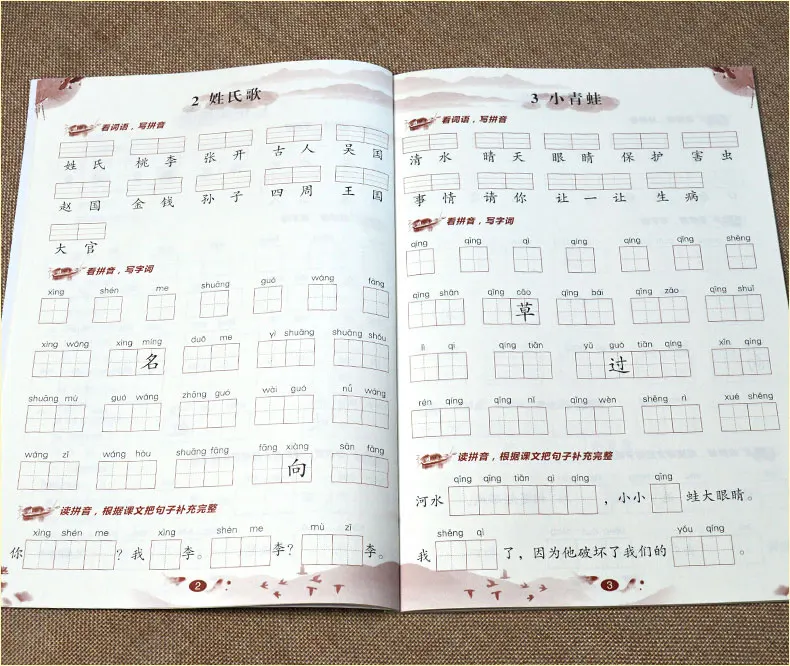 2 姓氏歌
看词语，写拼音
姓 氏 桃 李 张 开 古 人 吴 国
赵 国 金 钱 孙 子 四 周 王 国
大 官
看拼音，写字词
xìng shén me shuāng guó wáng fāng
xìng wáng xìng míng duō me yì shuāng shuāng shǒu
名
shuāng mù guó wáng zhōng guó wài guó nǚ wáng
wáng zǐ wáng hòu shuāng fāng fāng xiàng sān fāng
向
读拼音，根据课文把句子补充完整
xìng shén me xìng shén me mù zǐ
你 ？我 李。 李？ 李。
2
3 小青蛙
看词语，写拼音
清 水 晴 天 眼 睛 保 护 害 虫
事 情 请 你 让 一 让 生 病
看拼音，写字词
qíng qǐng qì qīng qīng shēng
qīng shān qīng cǎo qīng bái qīng zǎo qīng shuǐ
草
lì qi qíng tiān yǔ guò tiān qíng xīn qíng
过
rén qíng qǐng nǐ qǐng wèn shēng rì xué shēng
读拼音，根据课文把句子补充完整
qīng qīng tiān qì qíng qīng
河水 ，小小 蛙大眼睛。
shēng qì yóu qíng
我 了，因为他破坏了我们的 。
3